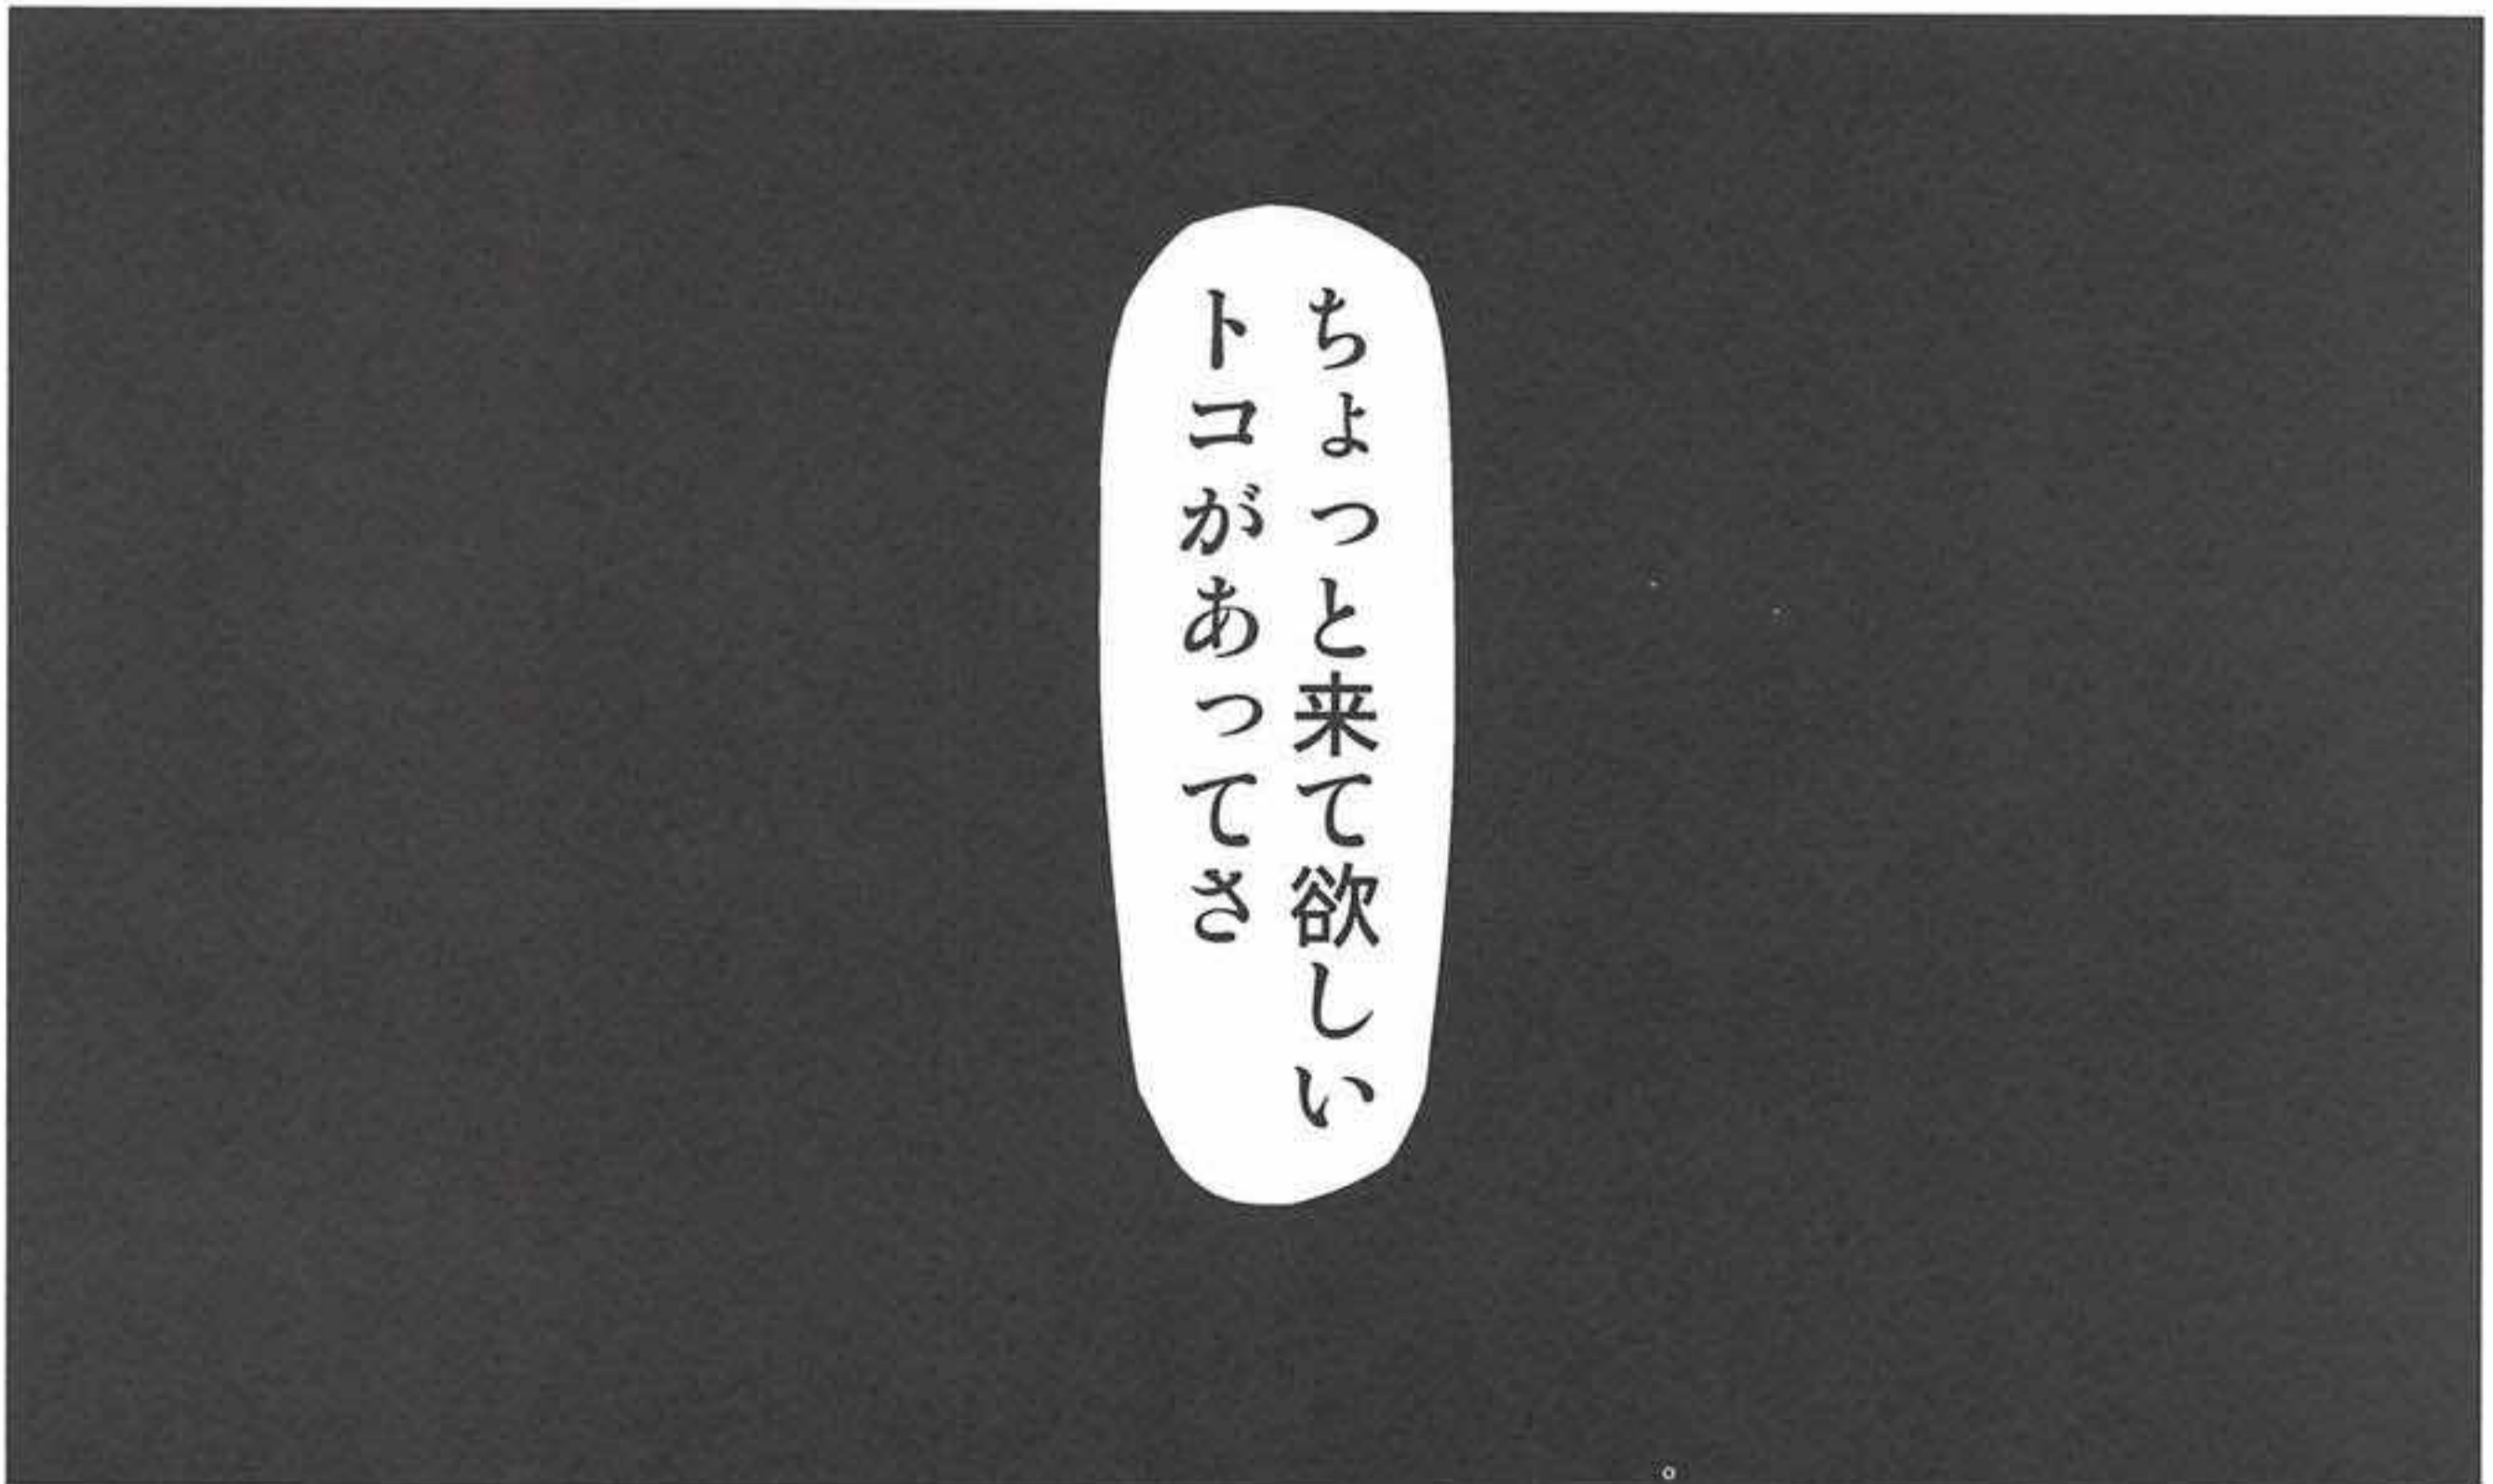 ちょっと来て欲しい
トコがあってさ